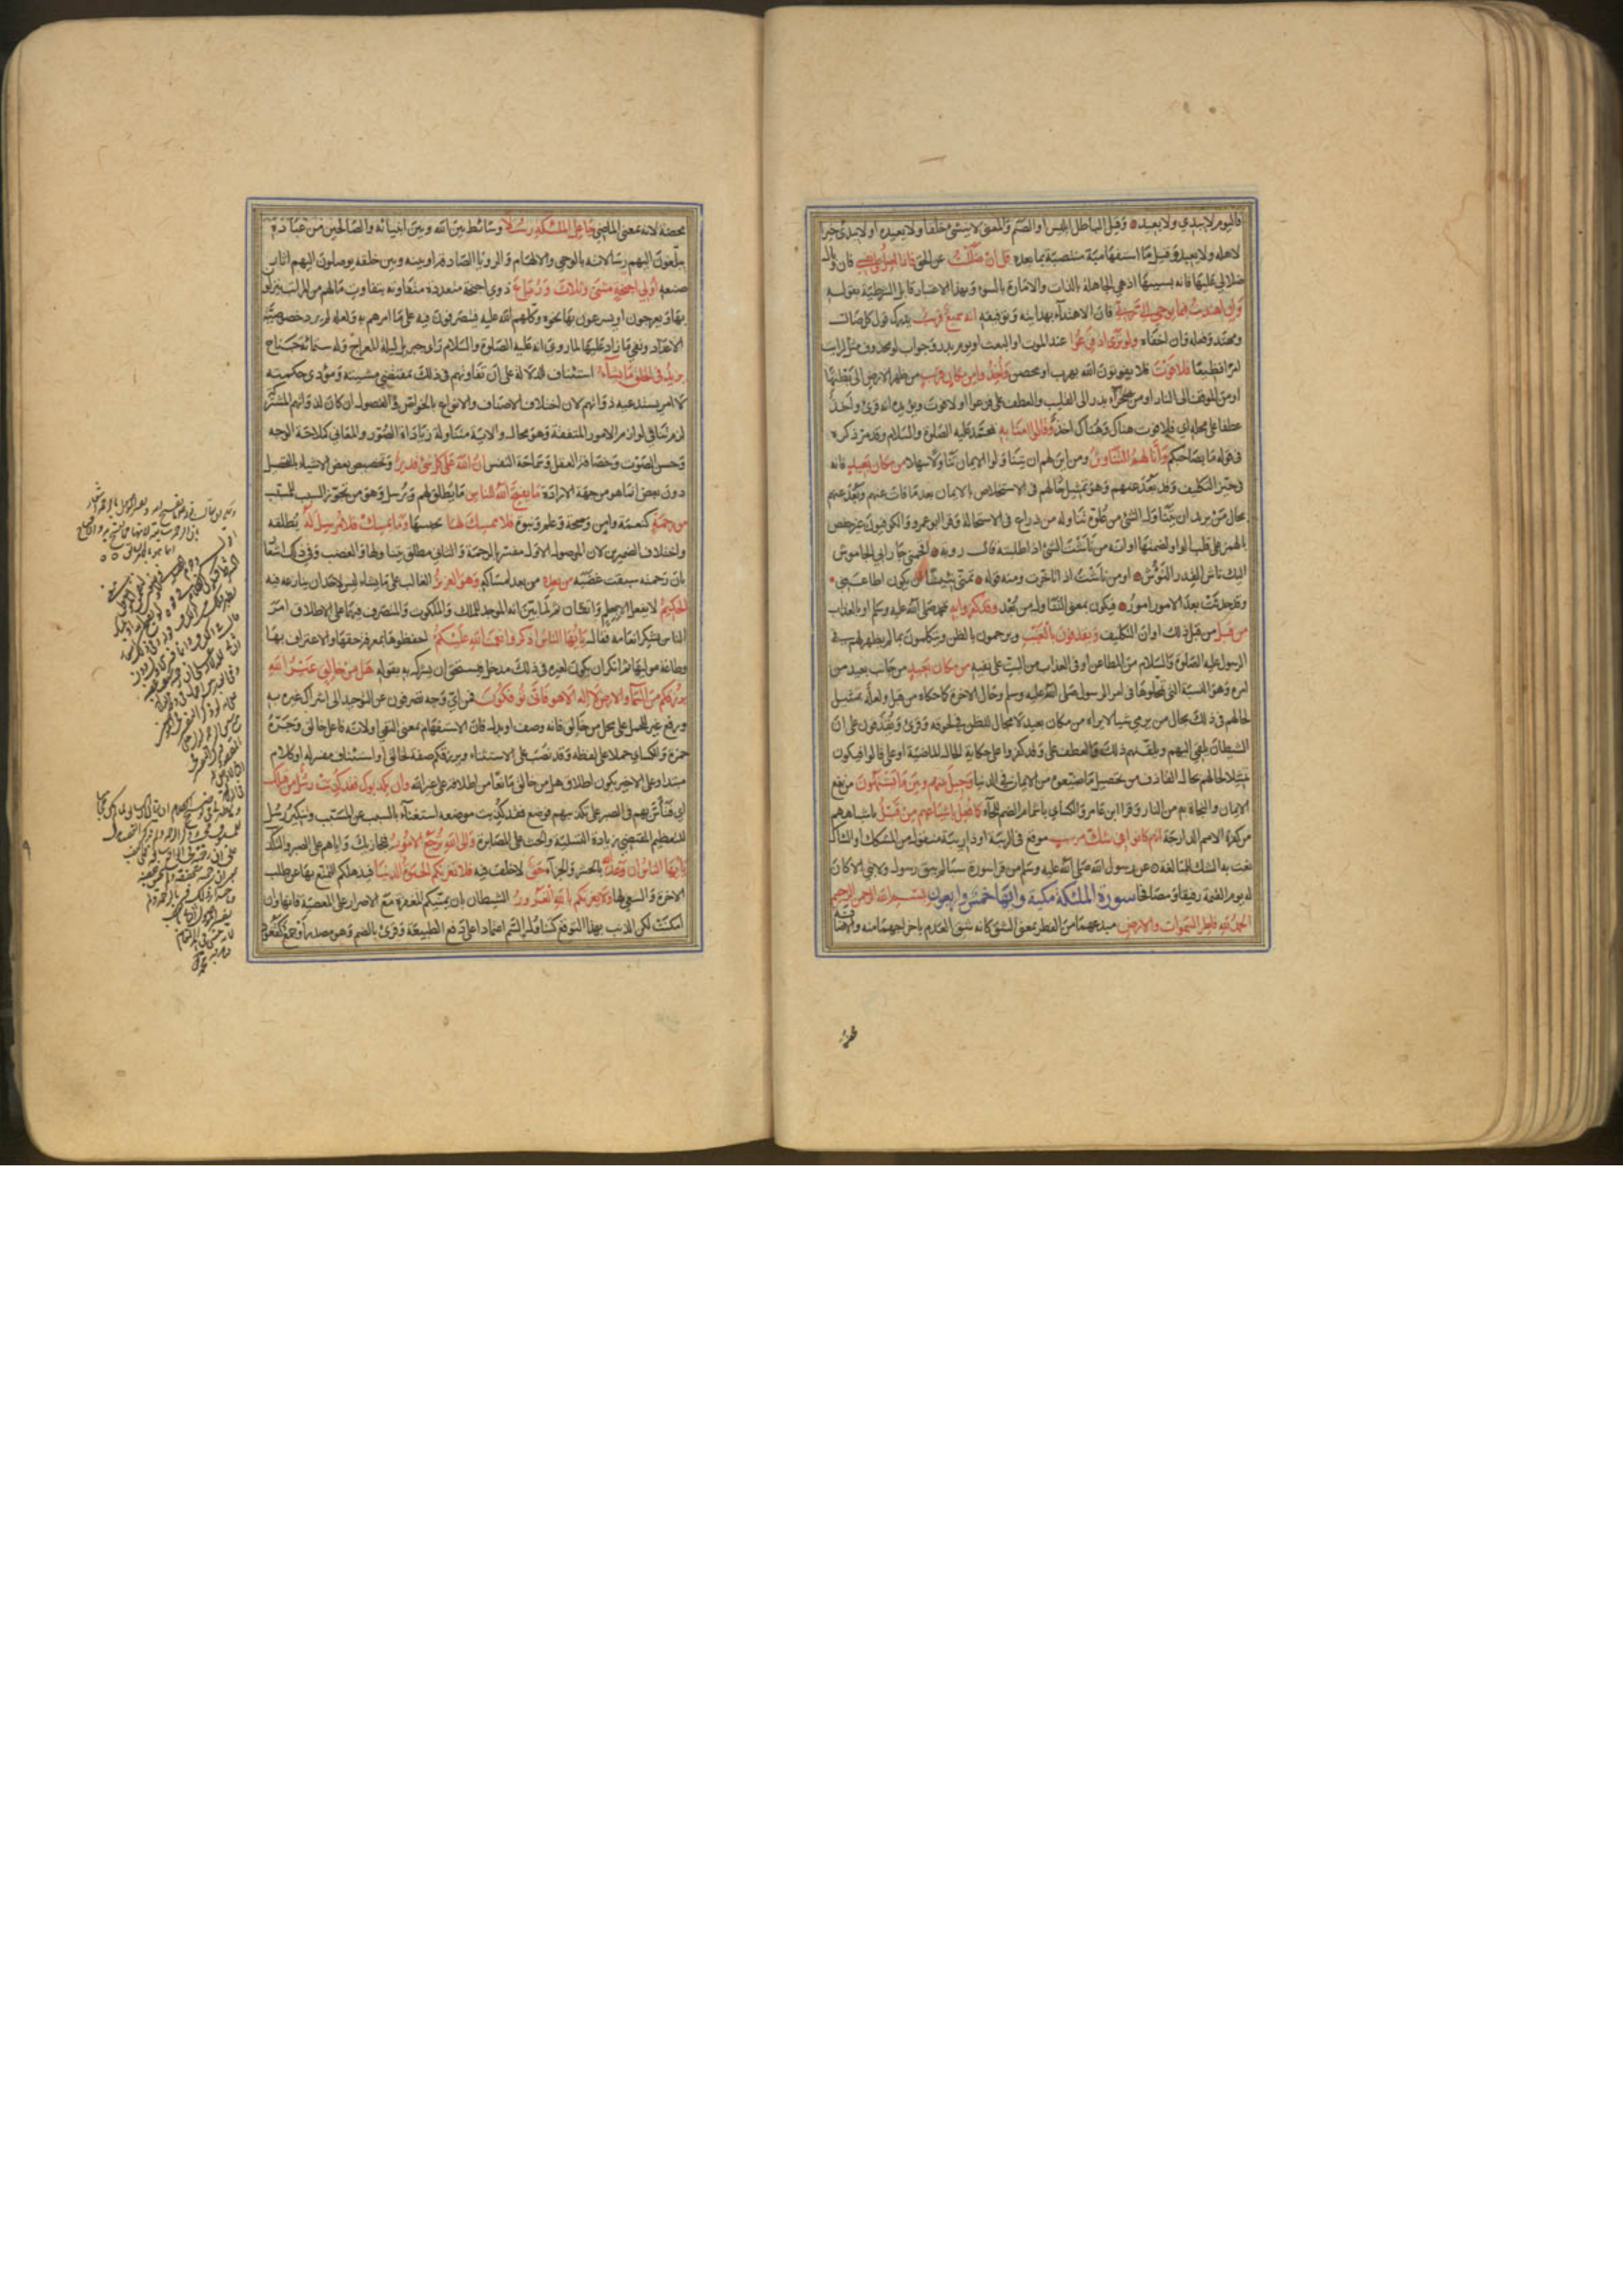 فاليوم لا يبدي ولا يعيد ه وقيل الباطل ابليس او الصنم والمعنى لا ينشئ خلقا ولا يعيده او لا يبدئ خيرا
لاهله ولا يعيده وقيل ما استفهامية منتصبة بما بعده قل ان ضللت عن الحق فانما اضل على نفسي فان وبال
ضلالي عليها فانه بسببها اذ هي الجاهلة بالذات والامارة بالسوء وبهذا الاعتبار قابل الشرطية بقوله
وان اهتديت فبما يوحي الي ربي فان الاهتداء بهدايته وتوفيقه انه سميع قريب يدرك قول كل ضال
ومهتد وفعله وان اخفاه ولو ترى اذ فزعوا عند الموت او البعث او يوم بدر وجواب لو محذوف مثل لرايت
امرا فظيعا فلا فوت فلا يفوتون الله بهرب او تحصن واخذوا من مكان قريب من ظهر الارض الى بطنها
او من الموقف الى النار او من صحراء بدر الى القليب والعطف على فزعوا او لا فوت ويؤيده انه قرئ واخذ
عطفا على محله اي فلا فوت هناك وهناك اخذ وقالوا امنا به بمحمد عليه الصلوة والسلام وقد مر ذكره
في قوله ما بصاحبكم وانى لهم التناوش ومن اين لهم ان يتناولوا الايمان تناولا سهلا من مكان بعيد فانه
في حيز التكليف وقد بعد عنهم وهو تمثيل حالهم في الاستخلاص بالايمان بعد ما فات عنهم وبعد عنهم
بحال من يريد ان يتناول الشئ من غلوة تناوله من ذراع في الاستحالة وقرا ابو عمرو والكوفيون غير حفص
بالهمز على قلب الواو لضمتها او انه من ناشت الشئ اذا طلبته قال روبة ه اقحمني جار ابي الجاموش
اليك ناش القدر النؤش ه او من ناشت اذا تاخرت ومنه قوله ه تمنى نئيشا ان يكون اطاعني ه
وقد حدثت بعد الامور امور ه فيكون بمعنى التناول من بعد وقد كفروا به بمحمد صلى الله عليه وسلم او بالعذاب
من قبل من قبل ذلك اوان التكليف ويقذفون بالغيب ويرجمون بالظن ويتكلمون بما لم يظهر لهم في
الرسول عليه الصلوة والسلام من المطاعن او في العذاب من البت على نفيه من مكان بعيد من جانب بعيد من
امره وهو الشبه التي تمحلوها في امر الرسول صلى الله عليه وسلم وحال الاخرة كما حكاه من قبل ولعله تمثيل
لحالهم في ذلك بحال من يرمي شيا لا يراه من مكان بعيد لا مجال للظن في لحوقه وقرئ ويقذفون على ان
الشيطان يلقي اليهم ويلقنهم ذلك والعطف على وقد كفروا على حكاية الحال الماضية او على قالوا فيكون
تمثيلا لحالهم بحال القاذف من تحصيل ما ضيعوه من الايمان في الدنيا وحيل بينهم وبين ما يشتهون من نفع
الايمان والنجاة به من النار وقرا ابن عامر والكسائي باشمام الضم للحاء كما فعل باشياعهم من قبل باشباههم
من كفرة الامم الدارجة انهم كانوا في شك مريب موقع في الريبة او ذي ريبة منقول من المشكك او الشاك
نعت به الشك للمبالغة ه عن رسول الله صلى الله عليه وسلم من قرا سورة سبا لم يبق رسول ولا نبي الا كان
له يوم القيمة رفيقا ومصافحا سورة الملئكة مكية وايها خمس واربعون بسم الله الرحمن الرحيم
الحمد لله فاطر السموات والارض مبدعهما من الفطر بمعنى الشق كانه شق العدم باخراجهما منه والاضافة
محضة لانه بمعنى الماضي جاعل الملئكة رسلا وسائط بين الله وبين انبيائه والصالحين من عباده
يبلغون اليهم رسالاته بالوحي والالهام والرؤيا الصادقة او بينه وبين خلقه يوصلون اليهم اثار
صنعه اولي اجنحة مثنى وثلاث ورباع ذوي اجنحة متعددة متفاوتة بتفاوت ما لهم من المراتب ينزلون
بها ويعرجون او يسرعون بها نحو ما وكلهم الله عليه فيتصرفون فيه على ما امرهم به ولعله لم يرد خصوصية
الاعداد ونفي ما زاد عليها لما روي انه عليه الصلوة والسلام راى جبريل ليلة المعراج وله ستمائة جناح
يزيد في الخلق ما يشاء استئناف للدلالة على ان تفاوتهم في ذلك بمقتضى مشيته ومؤدى حكمته
لا امر يستدعيه ذواتهم لان اختلاف الاصناف والانواع بالخواص والفصول ان كان لذواتهم المشتركة
لزم تنافي لوازم الامور المتفقة وهو محال والاية متناولة زيادات الصور والمعاني كملاحة الوجه
وحسن الصوت وحصافة العقل وسماحة النفس ان الله على كل شئ قدير وتخصيص بعض الاشياء بالتحصيل
دون بعض انما هو من جهة الارادة ما يفتح الله للناس ما يطلق لهم ويرسل وهو من تجوز السبب للمسبب
من رحمة كنعمة وامن وصحة وعلم ونبوة فلا ممسك لها يحبسها وما يمسك فلا مرسل له يطلقه
واختلاف الضميرين لان الموصول الاول مفسر بالرحمة والثاني مطلق يتناولها والغضب وفي ذلك اشعار
بان رحمته سبقت غضبه من بعده من بعد امساكه وهو العزيز الغالب على ما يشاء ليس لاحد ان ينازعه فيه
الحكيم لا يفعل الا بعلم واتقان ثم لما بين انه الموجد للملك والملكوت والمتصرف فيهما على الاطلاق امر
الناس بشكر انعامه فقال يايها الناس اذكروا نعمت الله عليكم احفظوها بمعرفة حقها والاعتراف بها
وطاعة موليها ثم انكر ان يكون لغيره في ذلك مدخل فيستحق ان يشرك به بقوله هل من خالق غير الله
يرزقكم من السماء والارض لا اله الا هو فانى تؤفكون فمن اي وجه تصرفون عن التوحيد الى اشراك غيره به
ورفع غير للحمل على محل من خالق فانه وصف او بدل فان الاستفهام بمعنى النفي او لانه فاعل خالق وجره
حمزة والكسائي حملا على لفظه وقد نصب على الاستثناء ويرزقكم صفة لخالق او استئناف مفسر له او كلام
مبتدا وعلى الاخير يكون اطلاق هل من خالق مانعا من اطلاقه على غير الله وان يكذبوك فقد كذبت رسل من قبلك
اي فتاس بهم في الصبر على تكذيبهم فوضع فقد كذبت موضعه استغناء بالسبب عن المسبب وتنكير رسل
للتعظيم المقتضي زيادة التسلية والحث على المصابرة والى الله ترجع الامور فيجازيك واياهم على الصبر والتكذيب
يايها الناس ان وعد الله بالحشر والجزاء حق لا خلف فيه فلا تغرنكم الحيوة الدنيا فيذهلكم التمتع بها عن طلب
الاخرة والسعي لها ولا يغرنكم بالله الغرور الشيطان بان يمنيكم المغفرة مع الاصرار على المعصية فانها وان
امكنت لكن الذنب بهذا التوقع كتناول السم اعتمادا على دفع الطبيعة وقرئ بالضم وهو مصدر او جمع كقعود